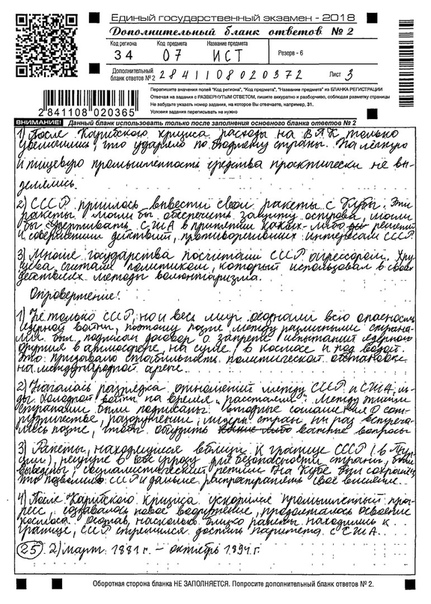 Единый государственный экзамен - 2018
Дополнительный бланк ответов № 2
Код региона Код предмета Название предмета
34 07 ИСТ Резерв - 6
Дополнительный бланк ответов № 2
2841108020372 Лист 3
Перепишите значения полей "Код региона", "Код предмета", "Название предмета" из БЛАНКА РЕГИСТРАЦИИ
Отвечая на задания с РАЗВЕРНУТЫМ ОТВЕТОМ, пишите аккуратно и разборчиво, соблюдая разметку страницы
Не забудьте указать номер задания, на которое Вы отвечаете, например, 31.
Условия задания переписывать не нужно
2841108020365
ВНИМАНИЕ! Данный бланк использовать только после заполнения основного бланка ответов № 2
1) После Карибского кризиса расходы на ВПК только
увеличились, что ударило по бюджету страны. На лёгкую
и пищевую промышленности средства практически не вы-
делялись.
2) СССР пришлось вывести свои ракеты с Кубы. Эти
ракеты могли бы обеспечить защиту острова, могли
бы сдерживать США в принятии каких-либо решений
и совершении действий, противоречащих интересам СССР
3) Многие государства посчитали СССР агрессором, Хру-
щёва считали политиком, который использовал в своих
действиях методы волюнтаризма.
Опровержение:
1) Не только СССР, но и весь мир осознали всю опасность
ядерной войны, поэтому позже между различными страна-
ми был подписан договор о запрете испытаний ядерного
оружия в атмосфере, на суше, в космосе и под водой.
Это придавало стабильность политической обстановке
на международной арене.
2) Началась разрядка отношений между СССР и США,
холодной войны на время "растаяли". Между этими
странами были подписаны соглашения о сот-
рудничестве, разоружении, лидеры стран не раз встреча-
лись позже, чтобы обсудить важные вопросы
3) Ракеты, находящиеся вблизи к границе СССР (в Тур-
ции), несущие в себе угрозу для безопасности страны, были
выведены, социалистический режим на Кубе был сохранён,
что позволило СССР и дальше распространять своё влияние.
4) После Карибского кризиса ускорился промышленный прог-
ресс, создавалось новое вооружение, продолжалось освоение
космоса. Осознав, насколько близко ракеты находились к
границе, СССР стремился достичь паритета с США.
25) 2) март 1881 г. - октябрь 1894 г.
Оборотная сторона бланка НЕ ЗАПОЛНЯЕТСЯ. Попросите дополнительный бланк ответов № 2.